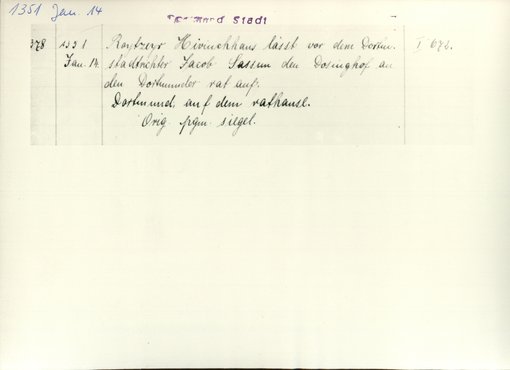 1351 Jan. 14
Dortmund Stadt
378 1351 Hövinckhaus lässt vor dem Dortm. I 672.
Jan. 14. stadtrichter Jacob Sassen den Dosinghof an
den Dortmunder rat auf.
Dortmund auf dem rathausl.
Orig. pgm. siegel.